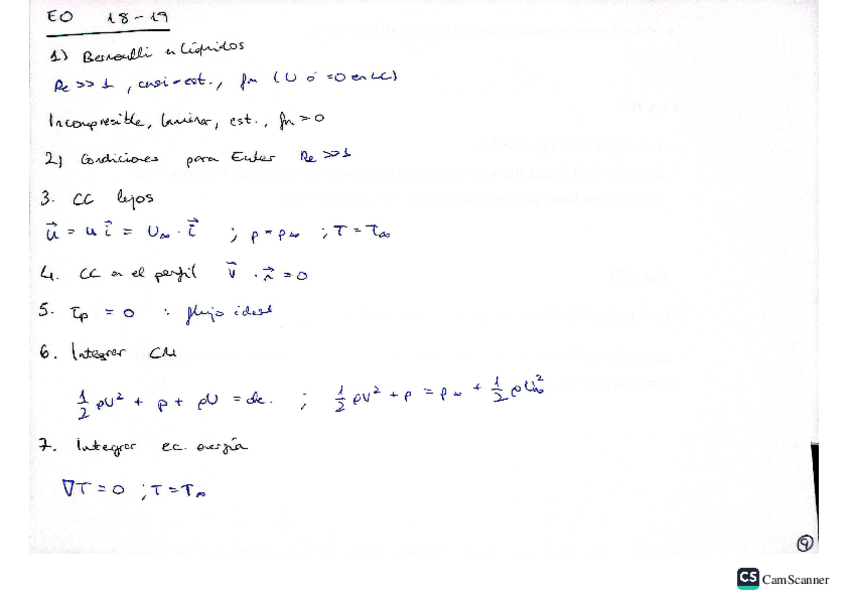 EO 18-19
1) Bernoulli en líquidos
Re >> 1, cuasi-est., fm (U ó =0 en LC)
Incompresible, laminar, est., fm = 0
2) Condiciones para Euler Re >> 1
3. CC lejos
u⃗ = u i⃗ = U∞ · i⃗ ; p = p∞ ; T = T∞
4. CC en el perfil v⃗ · n⃗ = 0
5. τp = 0 ∵ flujo ideal
6. Integrar CM
1/2 ρU² + p + ρU = cte. ; 1/2 ρU² + p = p∞ + 1/2 ρU∞²
7. Integrar ec. energía
∇T = 0 ; T = T∞
9
CS CamScanner